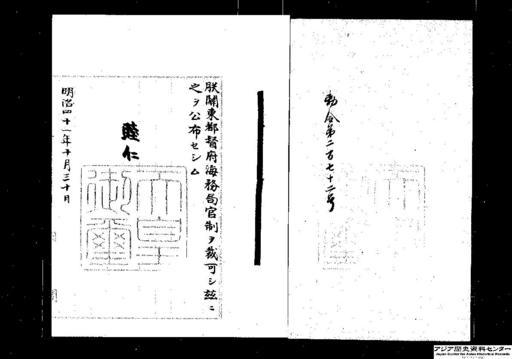 勅令第二百七十二号
朕関東都督府海務局官制ヲ裁可シ茲ニ
之ヲ公布セシム
睦仁
天皇
御璽
明治四十一年十月三十日
アジア歴史資料センター
Japan Center for Asian Historical Records